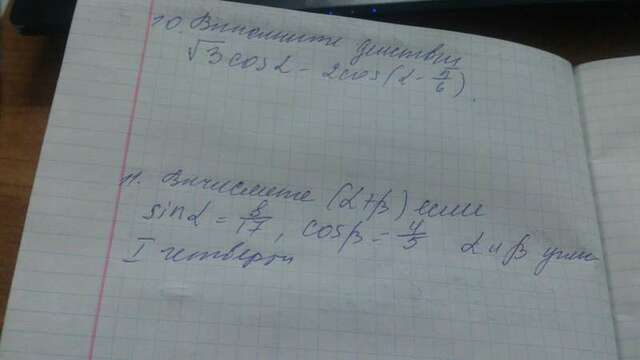 10. Выполните действия
√3cosα - 2cos(α - π/6).
11. Вычислите (α+β) если
sinα = 8/17, cosβ = 4/5 α и β углы
I четверти